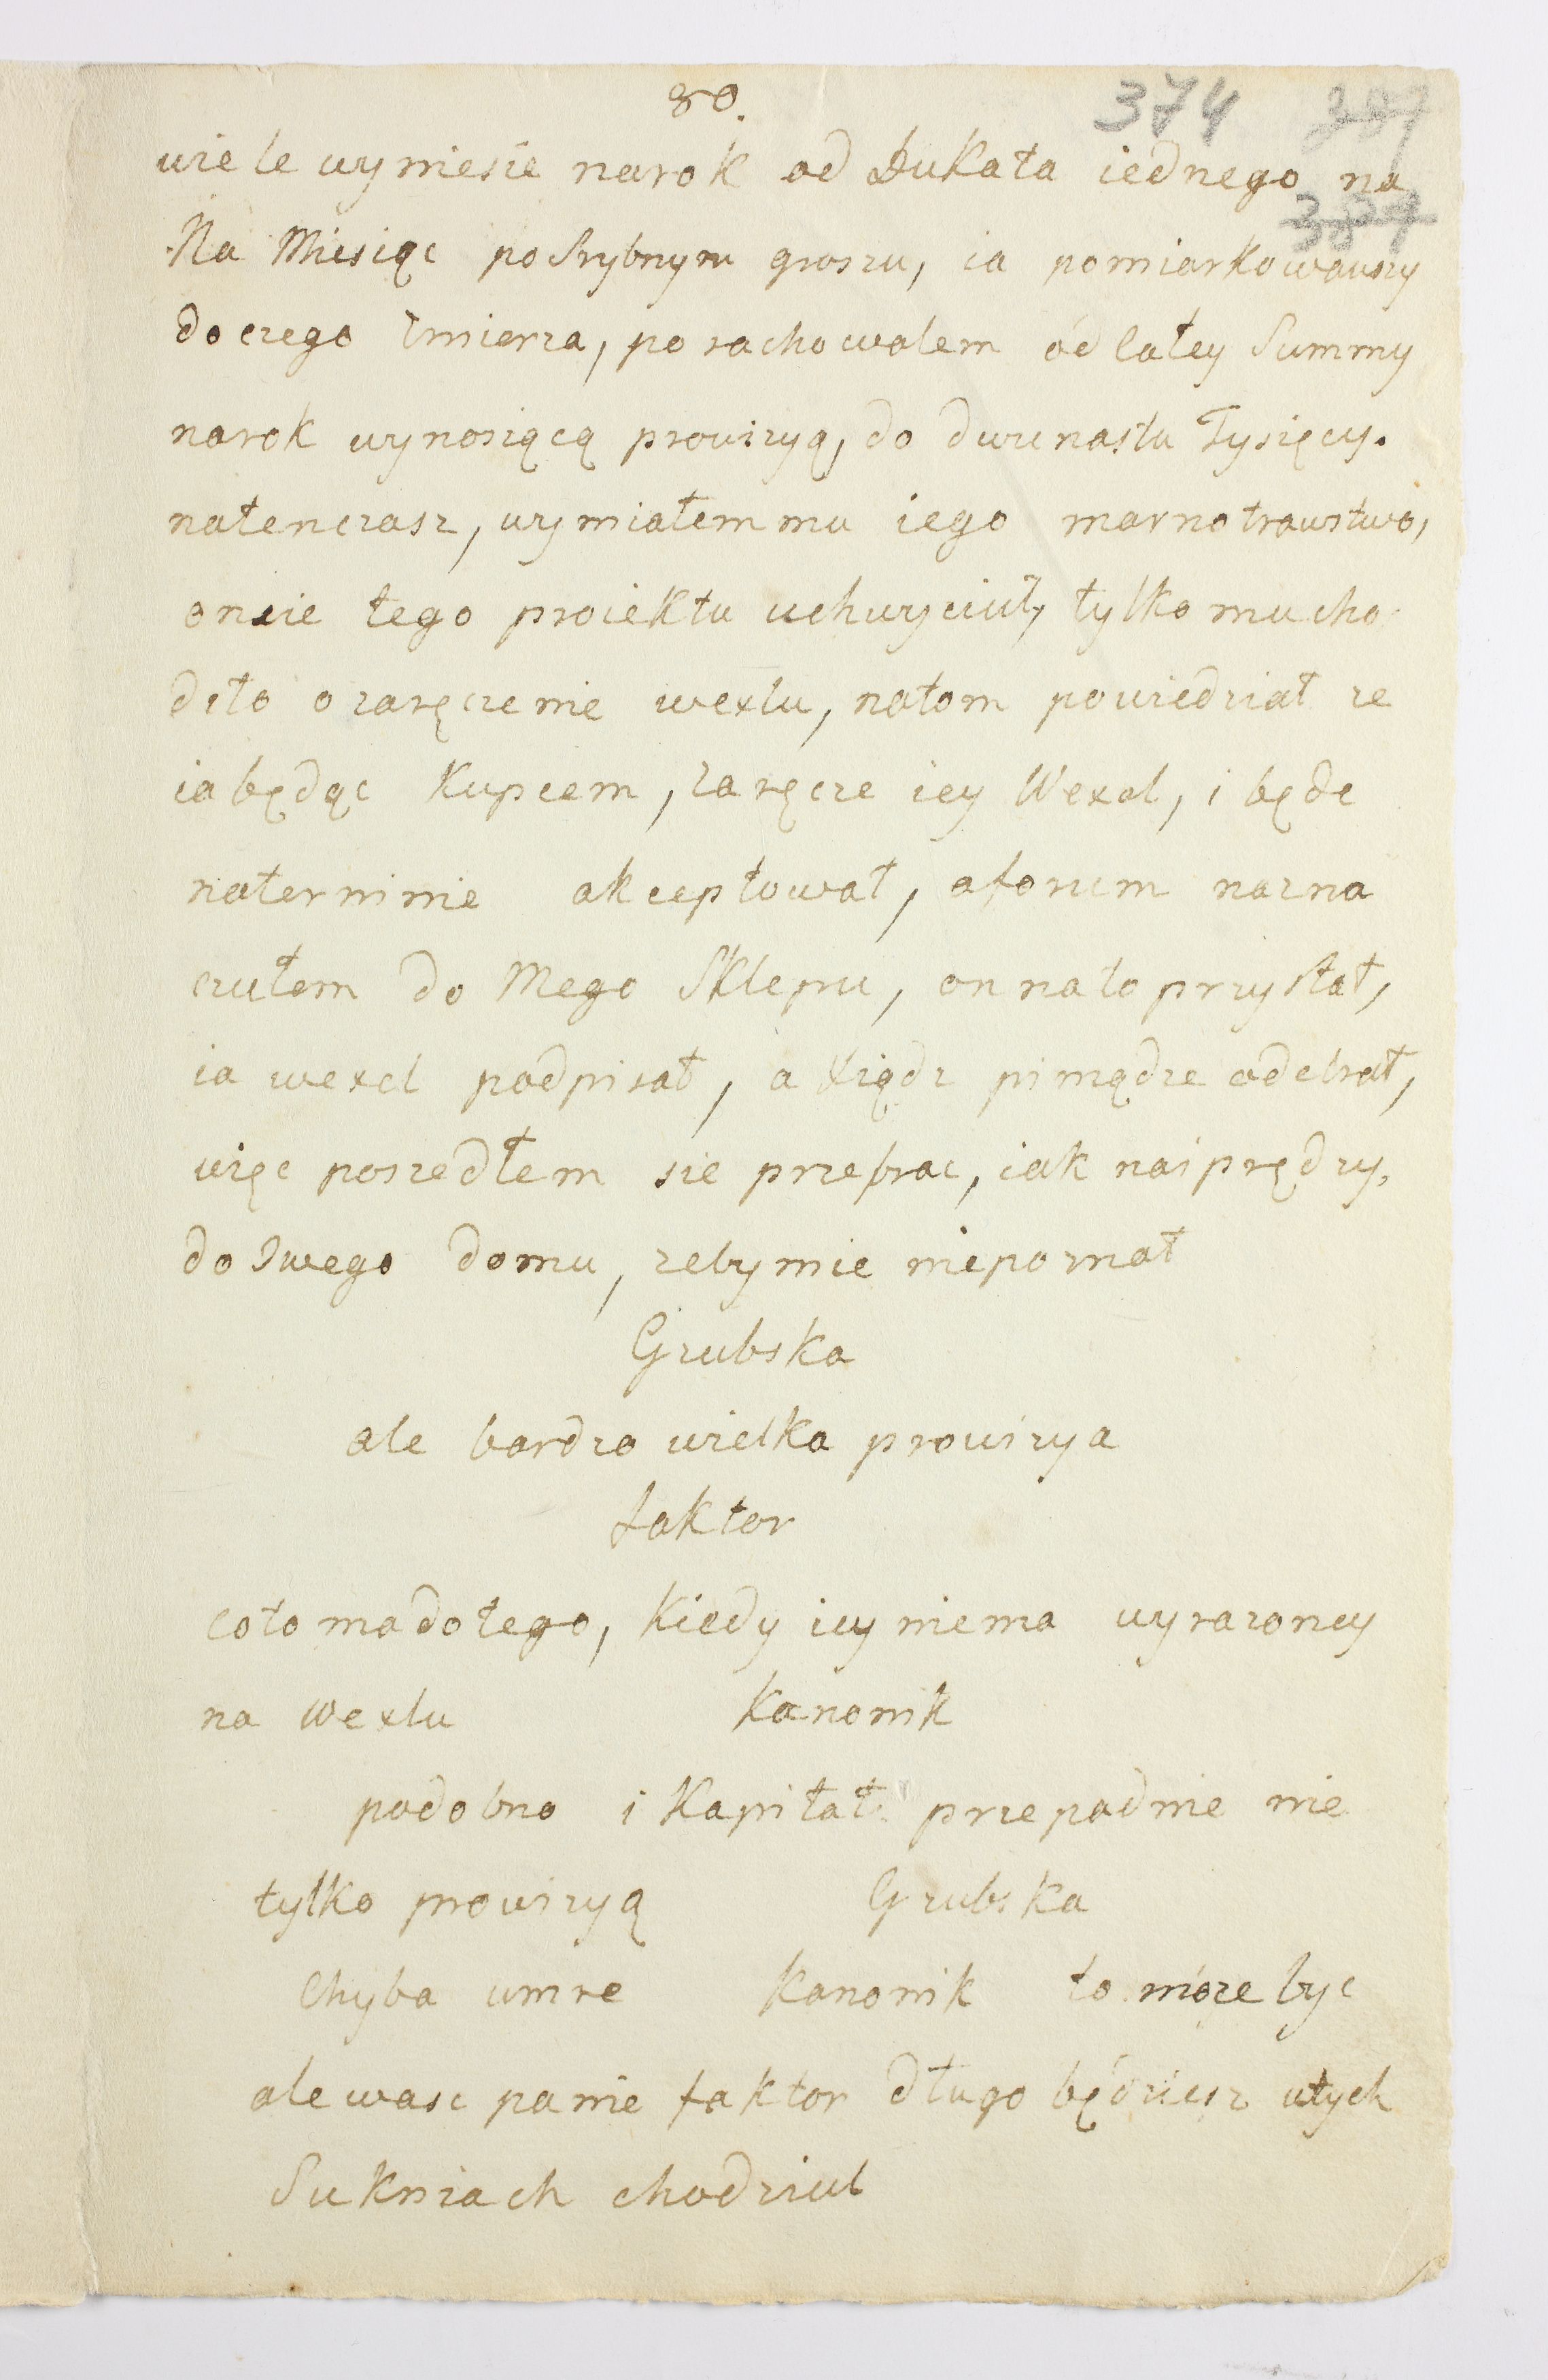 80.
374 387
wiele wyniesie narok od Dukata iednego na
387
Na Miesiąc posrybnym groszu, ia pomiarkowawszy
doczego zmierza, porachowalem od całey Summy
narok wynosiącą prowizyą, do dwunastu Tysięcy.
natenczasz, wymiałem mu iego marnotrawstwo,
onsie tego proiektu uchwyciuł, tylko mucho
dzło ozaręczenie wexlu, natom powiedział ze
iabędąc Kupcem, zaręcze iey Wexel, i będe
naterminie akceptował, afonem nazna
czułem do Mego Sklepu, on nato przystał,
ia wexel podpisał, a Xiądz piniądze odebrał,
więc poszedłem sie przebrac, iak naiprędzy,
do Swego domu, zebymie niepoznał
Grubska
ale bardzo wielka prowizya
faktor
coto madotego, Kiedy iey niema wyrazoney
na Wexlu Kanonik
podobno i Kapitał przepadnie nie
tylko prowizyą Grubska
Chyba umre Kanonik to moze byc
ale wasc panie faktor długo będziesz wtych
Sukniach chodziul